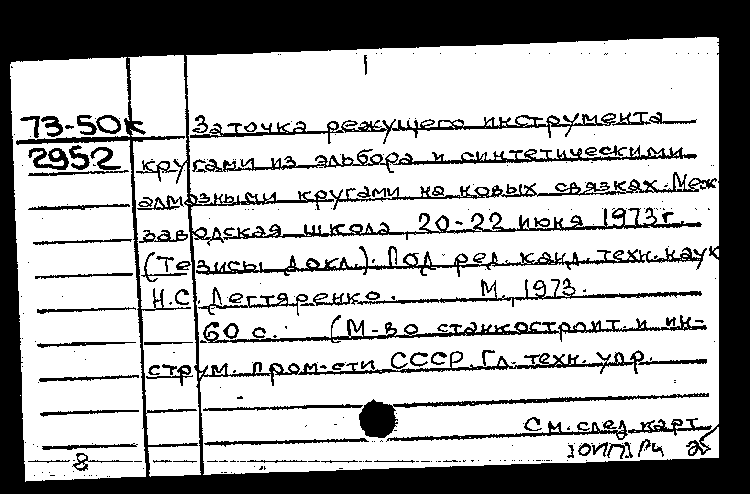 73-50к Заточка режущего инструмента
2952 кругами из эльбора и синтетическими
алмазными кругами на новых связках. Меж-
заводская школа, 20-22 июня 1973г.
(Тезисы докл.). Под ред. канд. техн. наук
Н.С. Дегтяренко. М., 1973.
60 с. (М-во станкостроит. и ин-
струм. пром-сти СССР. Гл. техн. упр.
См. след. карт.
8